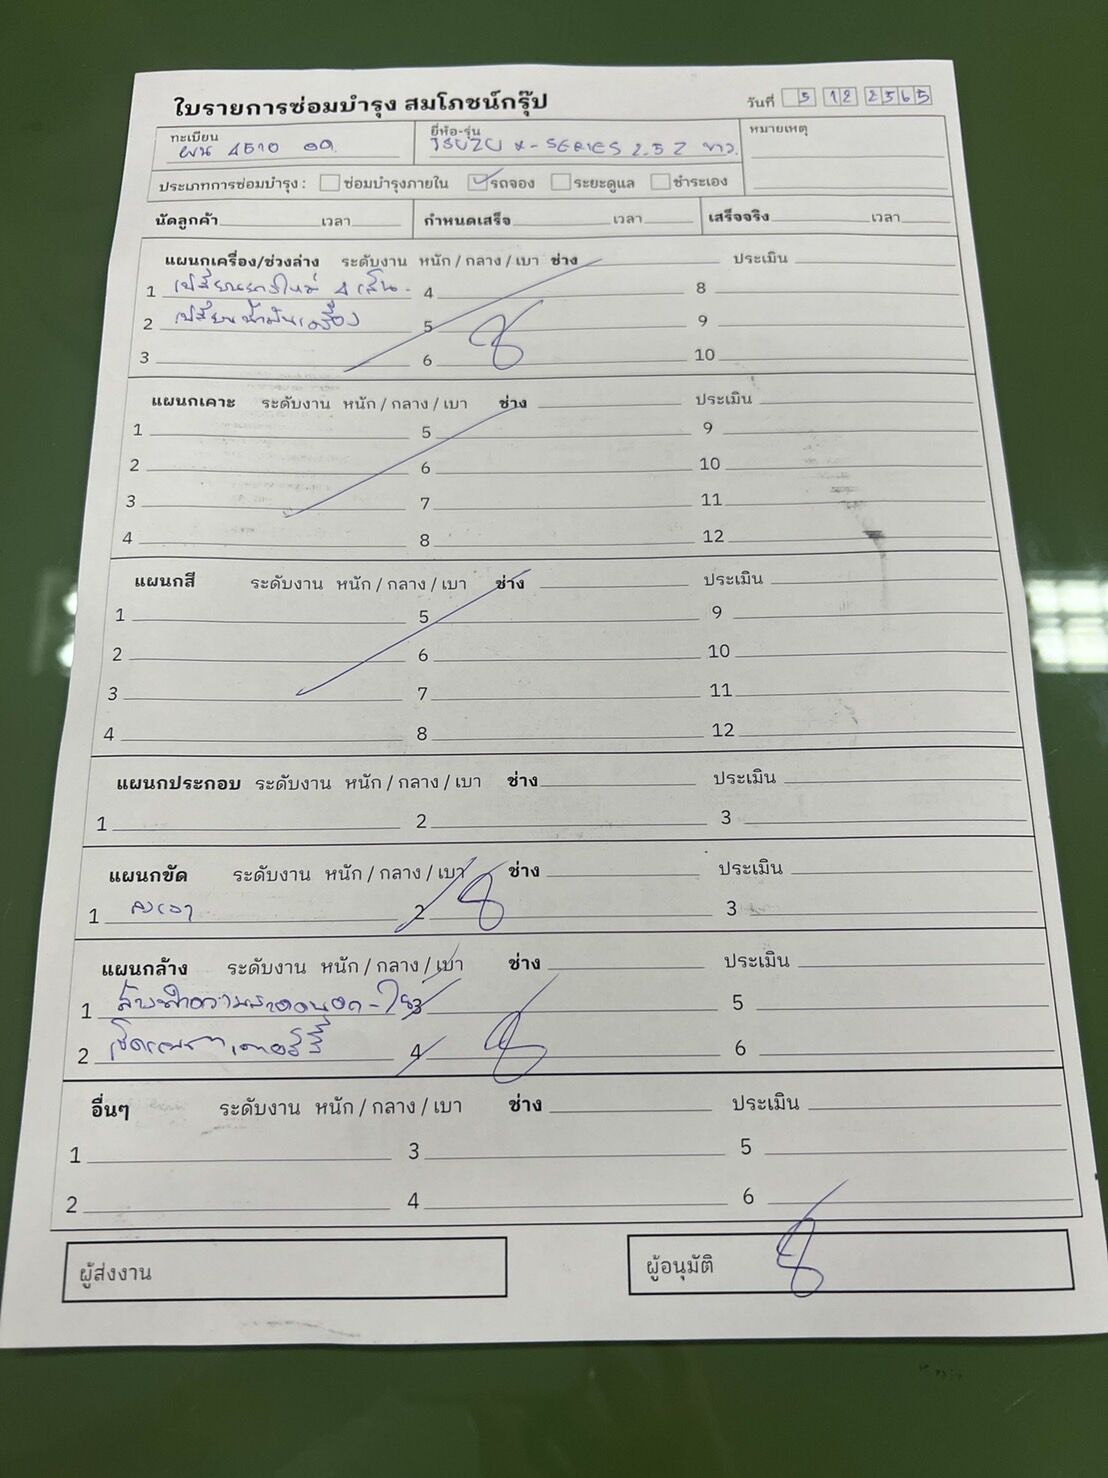 ใบรายการซ่อมบำรุง สมโภชน์กรุ๊ป วันที่ 5 12 2565
ทะเบียน ยี่ห้อ-รุ่น หมายเหตุ
ผน 4510 ISUZU X-SERIES 2.5 Z ขาว.
ประเภทการซ่อมบำรุง : ซ่อมบำรุงภายใน รถจอง ระยะดูแล ชำระเอง
นัดลูกค้า เวลา กำหนดเสร็จ เวลา เสร็จจริง เวลา
แผนกเครื่อง/ช่วงล่าง ระดับงาน หนัก / กลาง / เบา ช่าง ประเมิน
1 เปลี่ยนยางใหม่ 4 เส้น. 4 8
2 เปลี่ยนน้ำมันเครื่อง 5 9
3 6 10
แผนกเคาะ ระดับงาน หนัก / กลาง / เบา ช่าง ประเมิน
1 5 9
2 6 10
3 7 11
4 8 12
แผนกสี ระดับงาน หนัก / กลาง / เบา ช่าง ประเมิน
1 5 9
2 6 10
3 7 11
4 8 12
แผนกประกอบ ระดับงาน หนัก / กลาง / เบา ช่าง ประเมิน
1 2 3
แผนกขัด ระดับงาน หนัก / กลาง / เบา ช่าง ประเมิน
1 ลงเงา 2 3
แผนกล้าง ระดับงาน หนัก / กลาง / เบา ช่าง ประเมิน
1 ล้างทำความสะอาดนอก-ใน 3 5
2 เช็ดแบตเตอรี่ 4 6
อื่นๆ ระดับงาน หนัก / กลาง / เบา ช่าง ประเมิน
1 3 5
2 4 6
ผู้ส่งงาน ผู้อนุมัติ